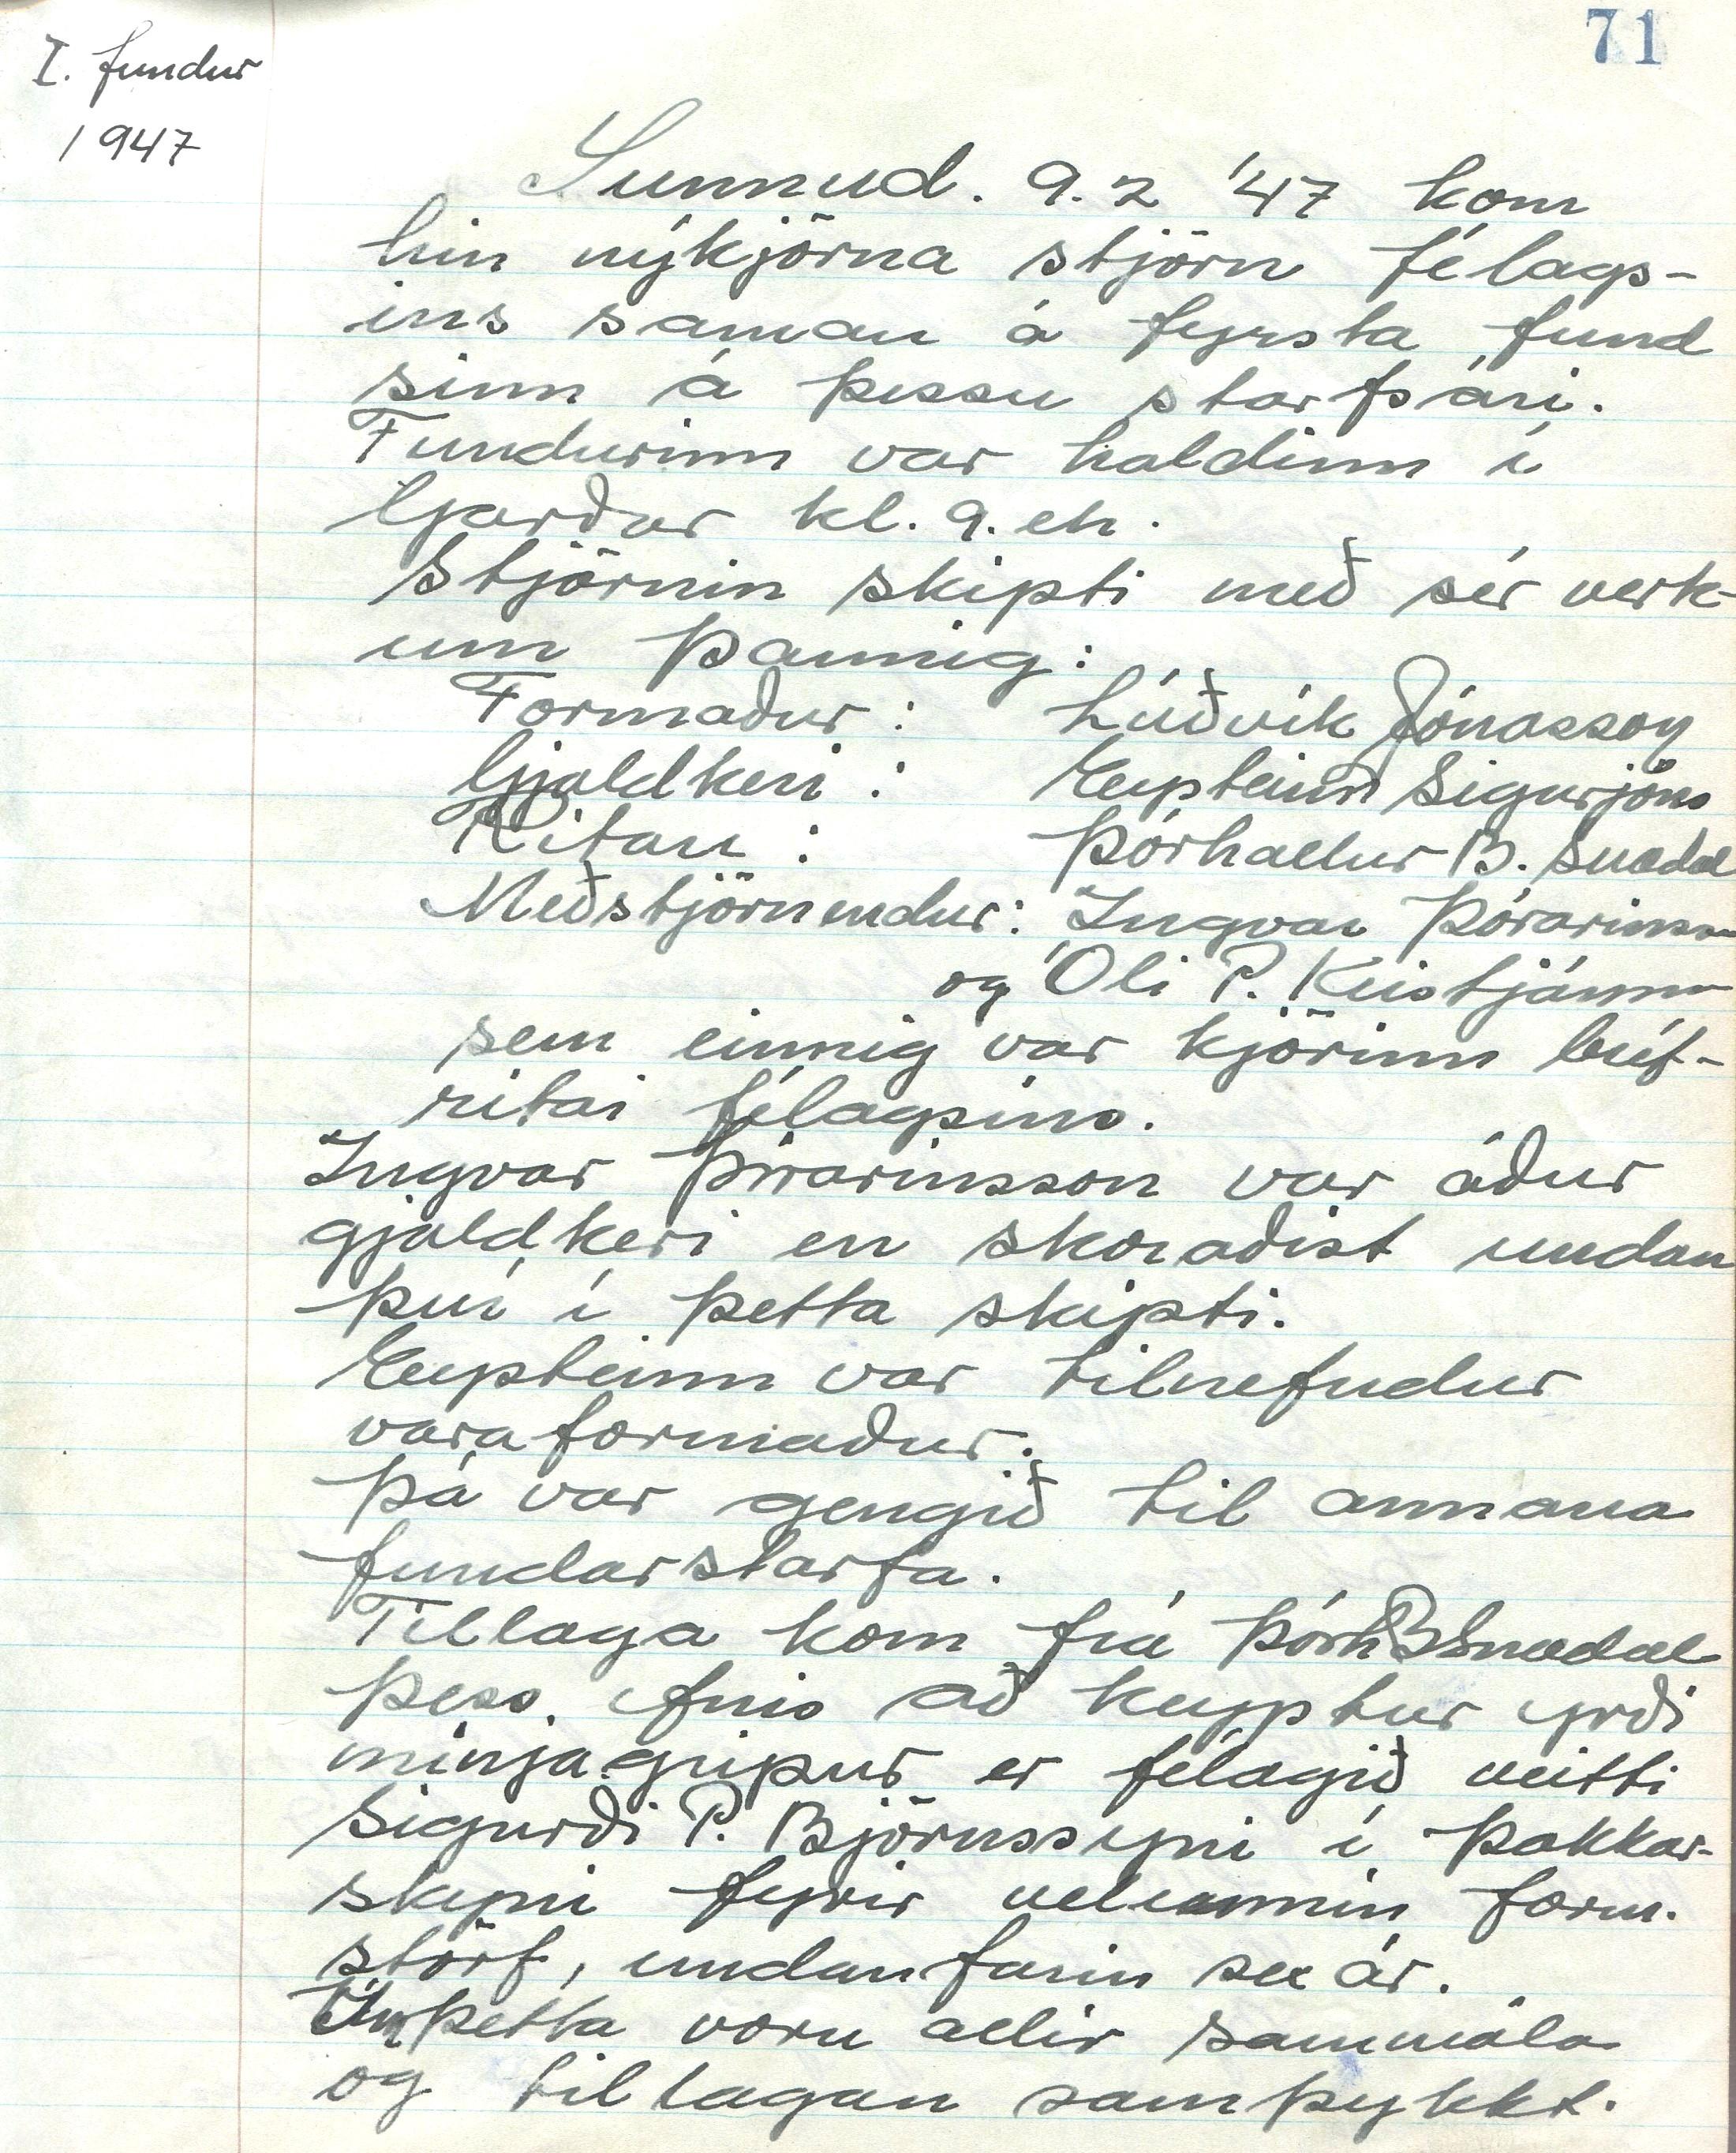 71
I. fundur
1947
Sunnud. 9.2 '47 kom
hin nýkjörna stjórn félags-
ins saman á fyrsta fund
sinn á þessu starfsári.
Fundurinn var haldinn í
Garðar kl. 9. eh.
Stjórnin skipti með sér verk-
um þannig:
Formaður: Lúðvík Jónasson
Gjaldkeri: Eysteinn Sigurjóns
Ritari: Þórhallur B. Snædal
Meðstjórnendur: Ingvar Þórarinsson
og Óli P. Kristjánsson
sem einnig var kjörinn bréf-
ritari félagsins.
Ingvar Þórarinsson var áður
gjaldkeri en skoraðist undan
því í þetta skipti.
Eysteinn var tilnefndur
varaformaður.
Þá var gengið til annara
fundarstarfa.
Tillaga kom frá Þórh B Snædal
þess efnis að keyptur yrði
minjagripur er félagið veitti
Sigurði P. Björnssyni í þakkar-
skyni fyrir velunnin form.
störf, undanfarin sex ár.
Um þetta voru allir sammála
og tillagan samþykkt.